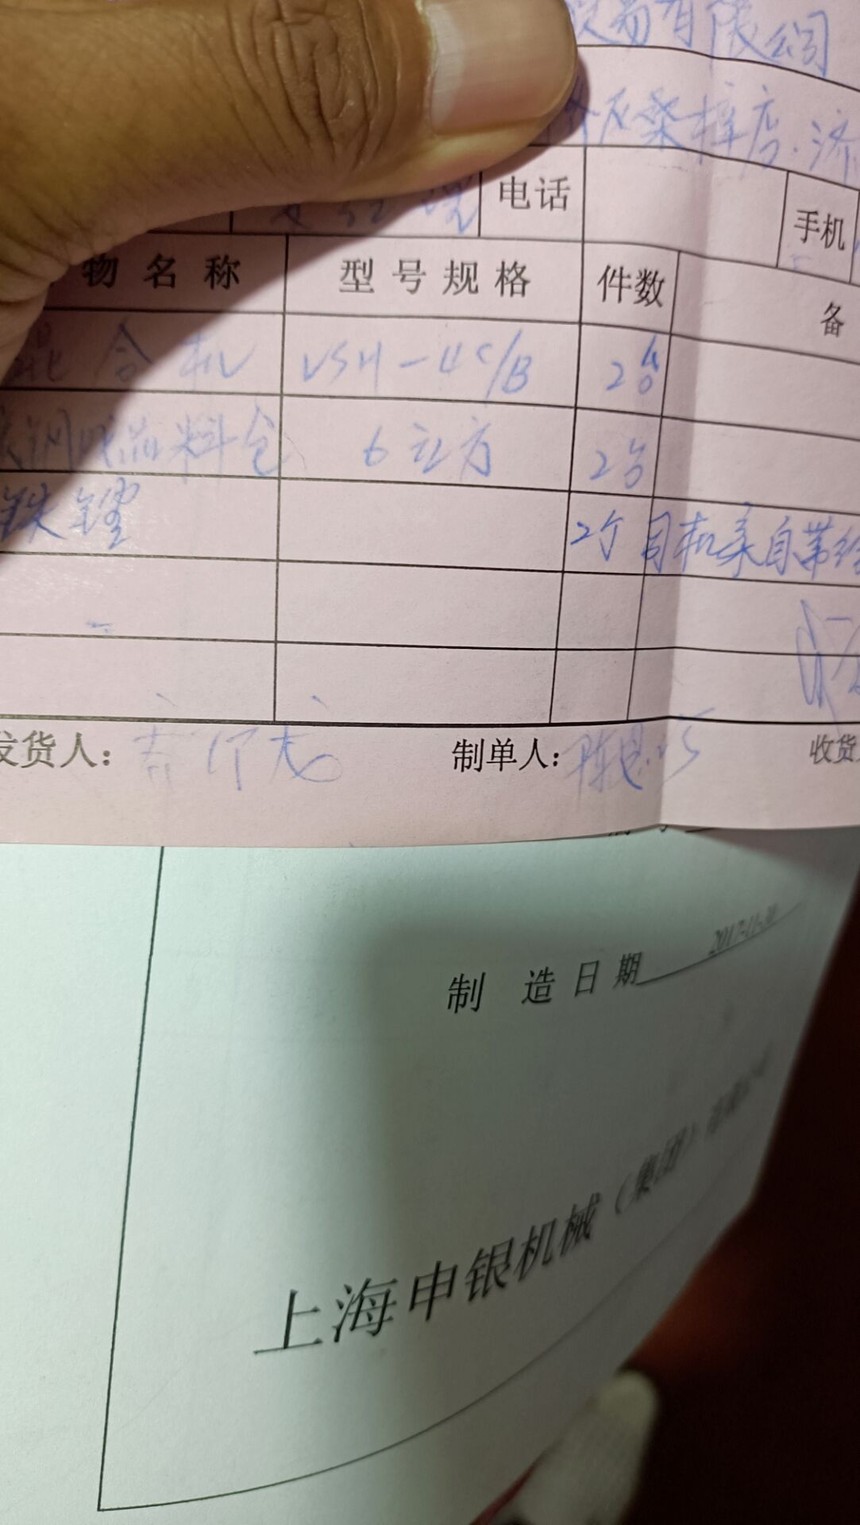 贸易有限公司
桑梓店.济
电话
手机
物名称 型号规格 件数 备
混合机 VSH-4C/B 2台
成品料仓 6立方 2台
铁 2个 司机亲自带给
发货人:
制单人:
收货
制造日期 2017-11-30
上海申银机械(集团)有限公司